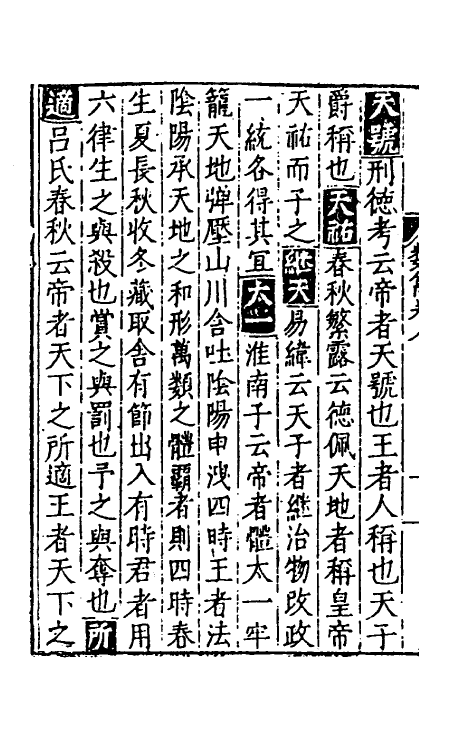 天號刑徳考云帝者天號也王者人稱也天子
爵稱也天祐春秋繁露云徳佩天地者稱皇帝
天祐而子之継天易緯云天子者継治物改政
一統各得其宜太一淮南子云帝者體太一牢
籠天地弾壓山川含吐陰陽申洩四時王者法
陰陽承天地之和形萬類之體霸者則四時春
生夏長秋收冬藏取舎有節出入有時君者用
六律生之與殺也賞之與罰也予之與奪也所
適呂氏春秋云帝者天下之所適王者天下之